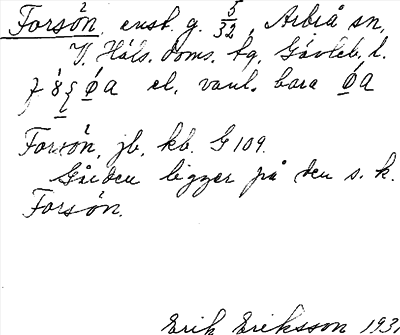 Forsön, enst. g. 5/32, Arbrå sn,
V. Häls. doms. tg, Gävleb. l.
el. vanl. bara øa
Forsön, jb. kb. G 109.
Gården ligger på den s. k.
Forsön.
Erik Eriksson 193